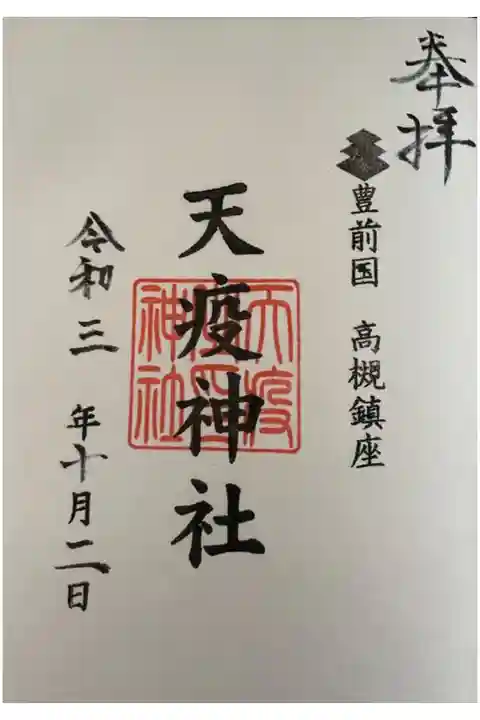 奉拝
豊前国　高槻鎮座
天疫神社
天疫神社印
令和三年十月二日